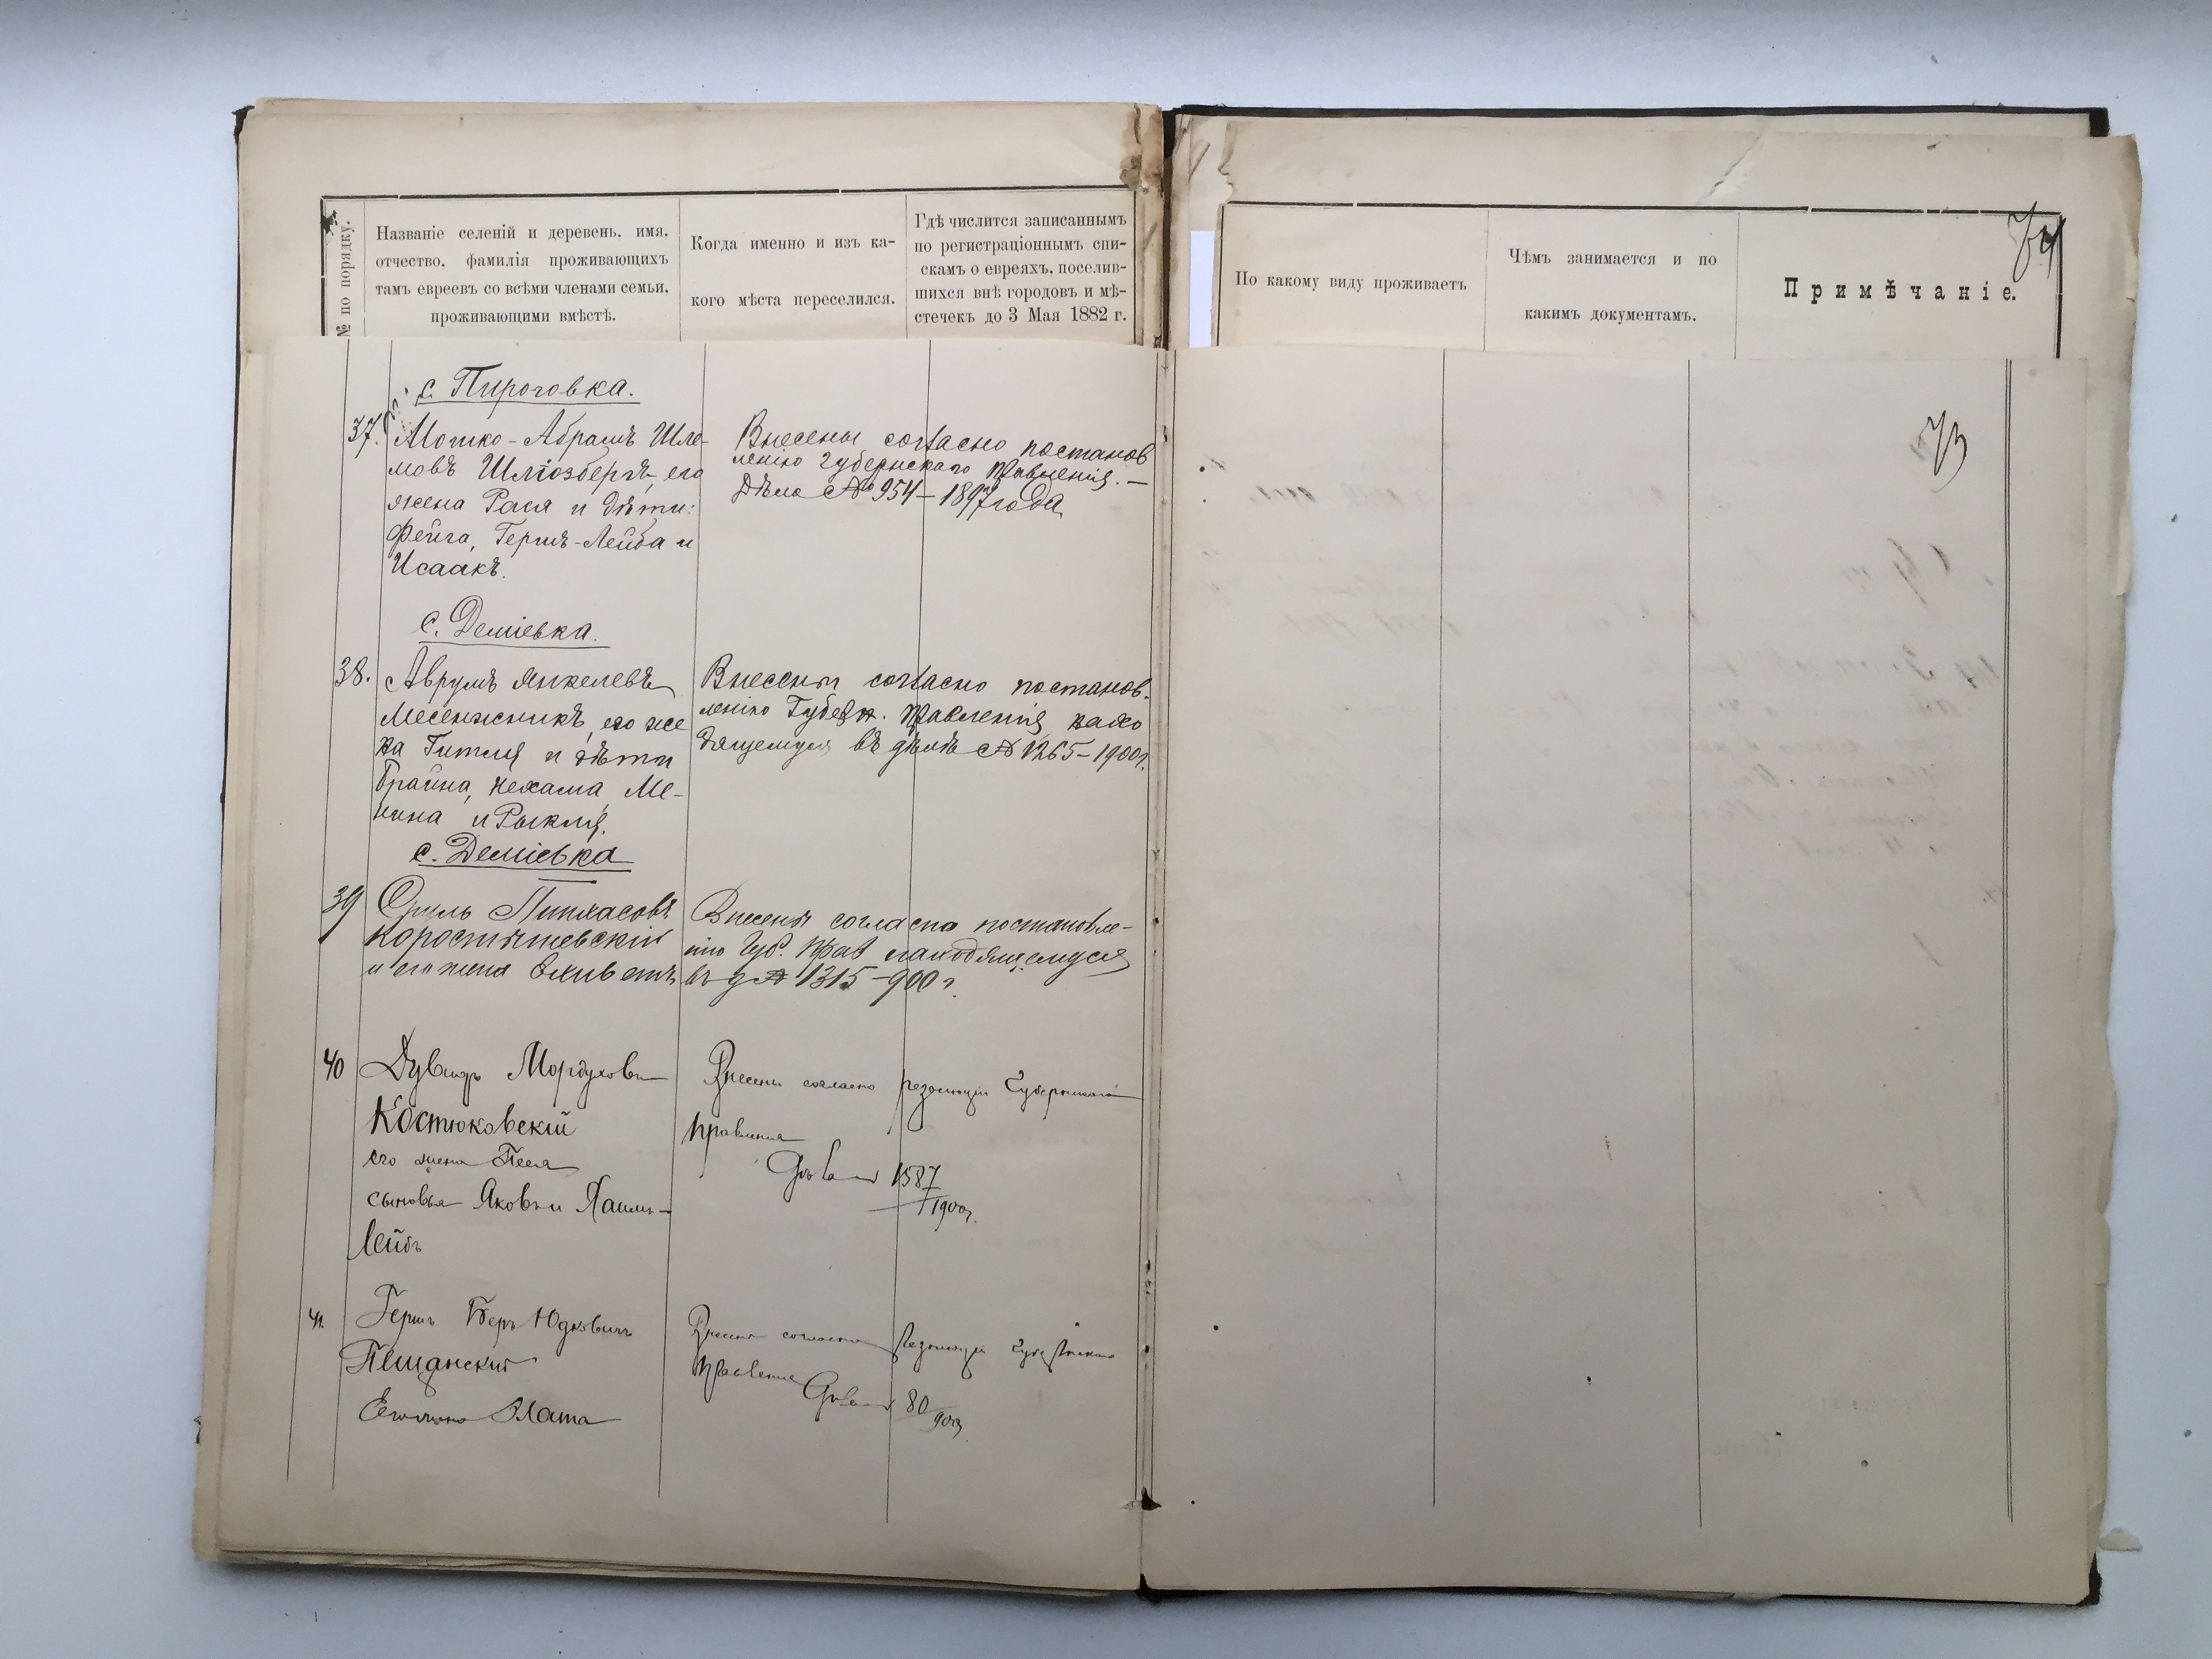 № по порядку.
Названіе селеній и деревень, имя,
отчество, фамилія проживающихъ
тамъ евреевъ со всѣми членами семьи,
проживающими вмѣстѣ.
Когда именно и изъ ка-
кого мѣста переселился.
Гдѣ числится записаннымъ
по регистраціоннымъ спи-
скамъ о евреяхъ, поселив-
шихся внѣ городовъ и мѣ-
стечекъ до 3 Мая 1882 г.
По какому виду проживаетъ
Чѣмъ занимается и по
какимъ документамъ.
Примѣчаніе.
74
73
с. Пироговка.
37. Мошко-Абрамъ Шле-
мовъ Шлiозбергъ, его
жена Рася и дѣти:
Фейга, Гершъ-Лейба и
Исаакъ.
Внесены согласно постанов
ленію Губернскаго Правленія. —
Дѣло № 954 – 1897 года
с. Деміевка.
38. Аврумъ Янкелевъ
Месенжникъ, его же
на Гитля и дѣти
Брайна, Нехама, Ме-
нина и Рыкля.
Внесены согласно постанов-
ленію Губерн. Правленія, нахо
дящемуся въ дѣлѣ № 1265–1900 г.
с. Деміевка
39 Сруль Пинхасовъ
Коростышевскій
и его жена
Внесены согласно постановле-
нію Губ. Прав находящемуся
въ д № 1315–900 г.
40 Дувидъ Мордуховъ
Костюковскій
его жена Песя
сыновья Яковъ и Хаимъ-
Лейбъ
Внесены согласно резолюціи Губернскаго
Правленія
1587
1900 г.
41. Гершъ Беръ Юдковичъ
Пещанскій
Его жена Злата
Внесены согласно резолюціи Губернскаго
Правленія
80